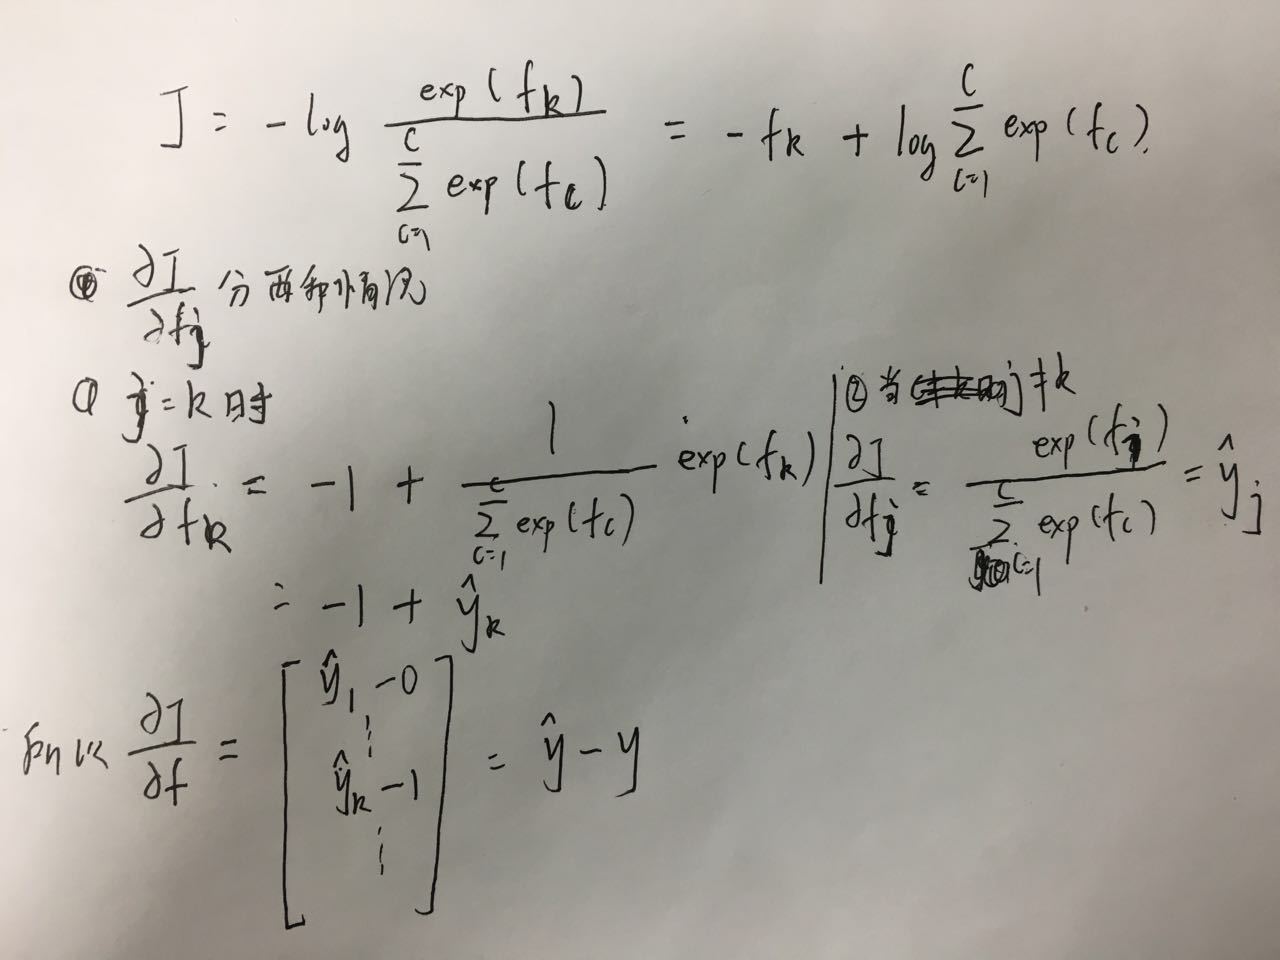 J = -log exp(f_k) / Σ_{c=1}^{C} exp(f_c) = -f_k + log Σ_{c=1}^{C} exp(f_c).
∂J/∂f_j 分两种情况
① j=k时
∂J/∂f_k = -1 + 1 / Σ_{c=1}^{C} exp(f_c) · exp(f_k)
= -1 + ŷ_k
② 当 j≠k
∂J/∂f_j = exp(f_j) / Σ_{c=1}^{C} exp(f_c) = ŷ_j
所以 ∂J/∂f = [ŷ_1 -0 ⋮ ŷ_k -1 ⋮] = ŷ - y